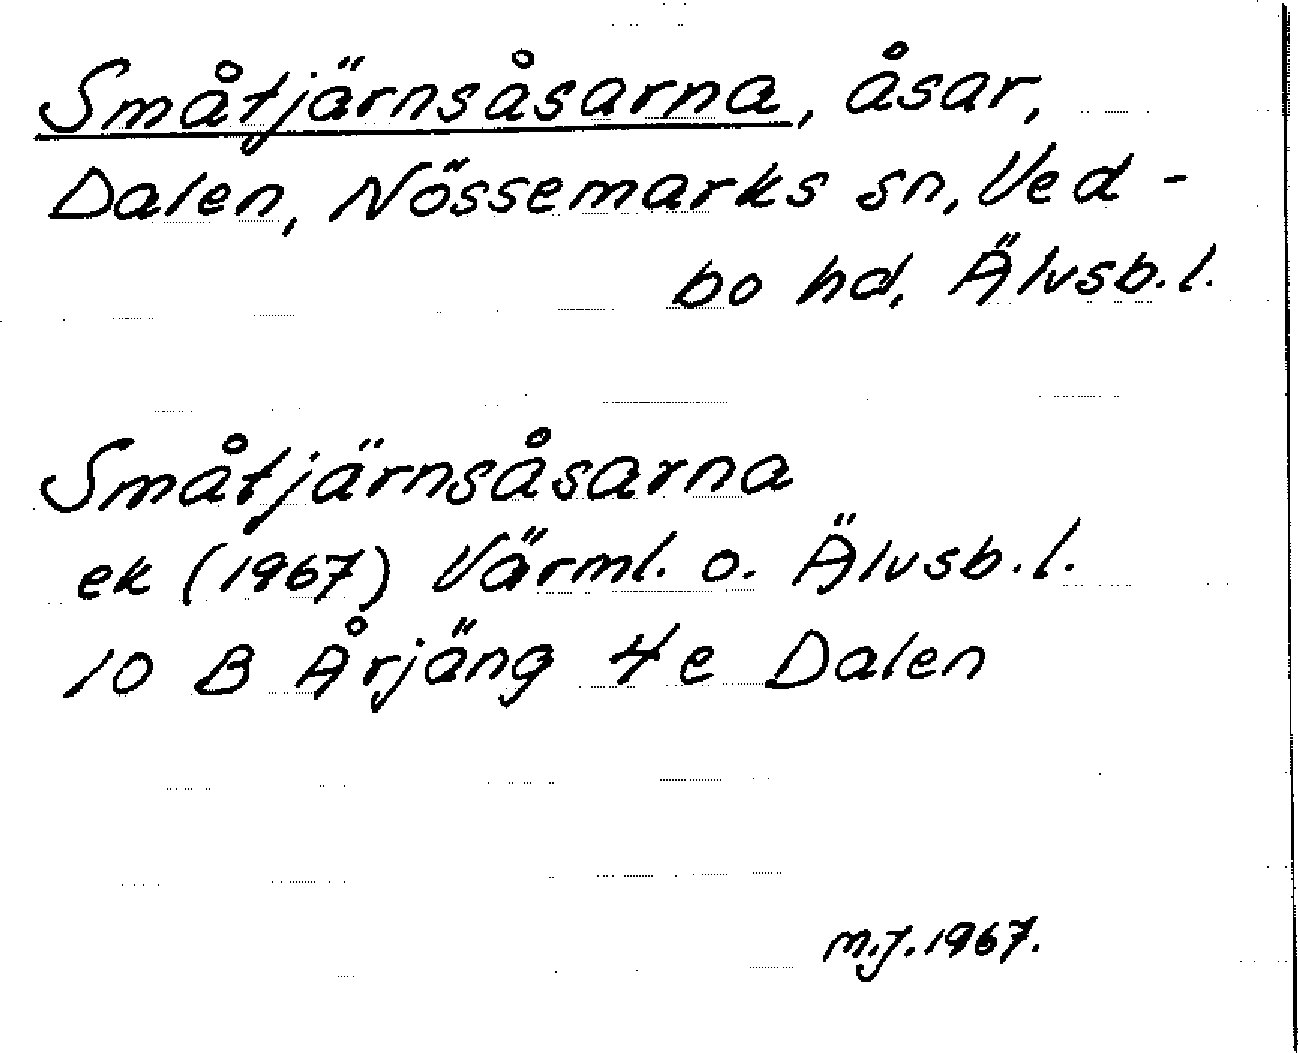 Småtjärnsåsarna, åsar,
Dalen, Nössemarks sn, Ved-
bo hd, Älvsb.l.
Småtjärnsåsarna
ek (1967) Värml. o. Älvsb.l.
10 B Årjäng 4e Dalen
M.J. 1967.